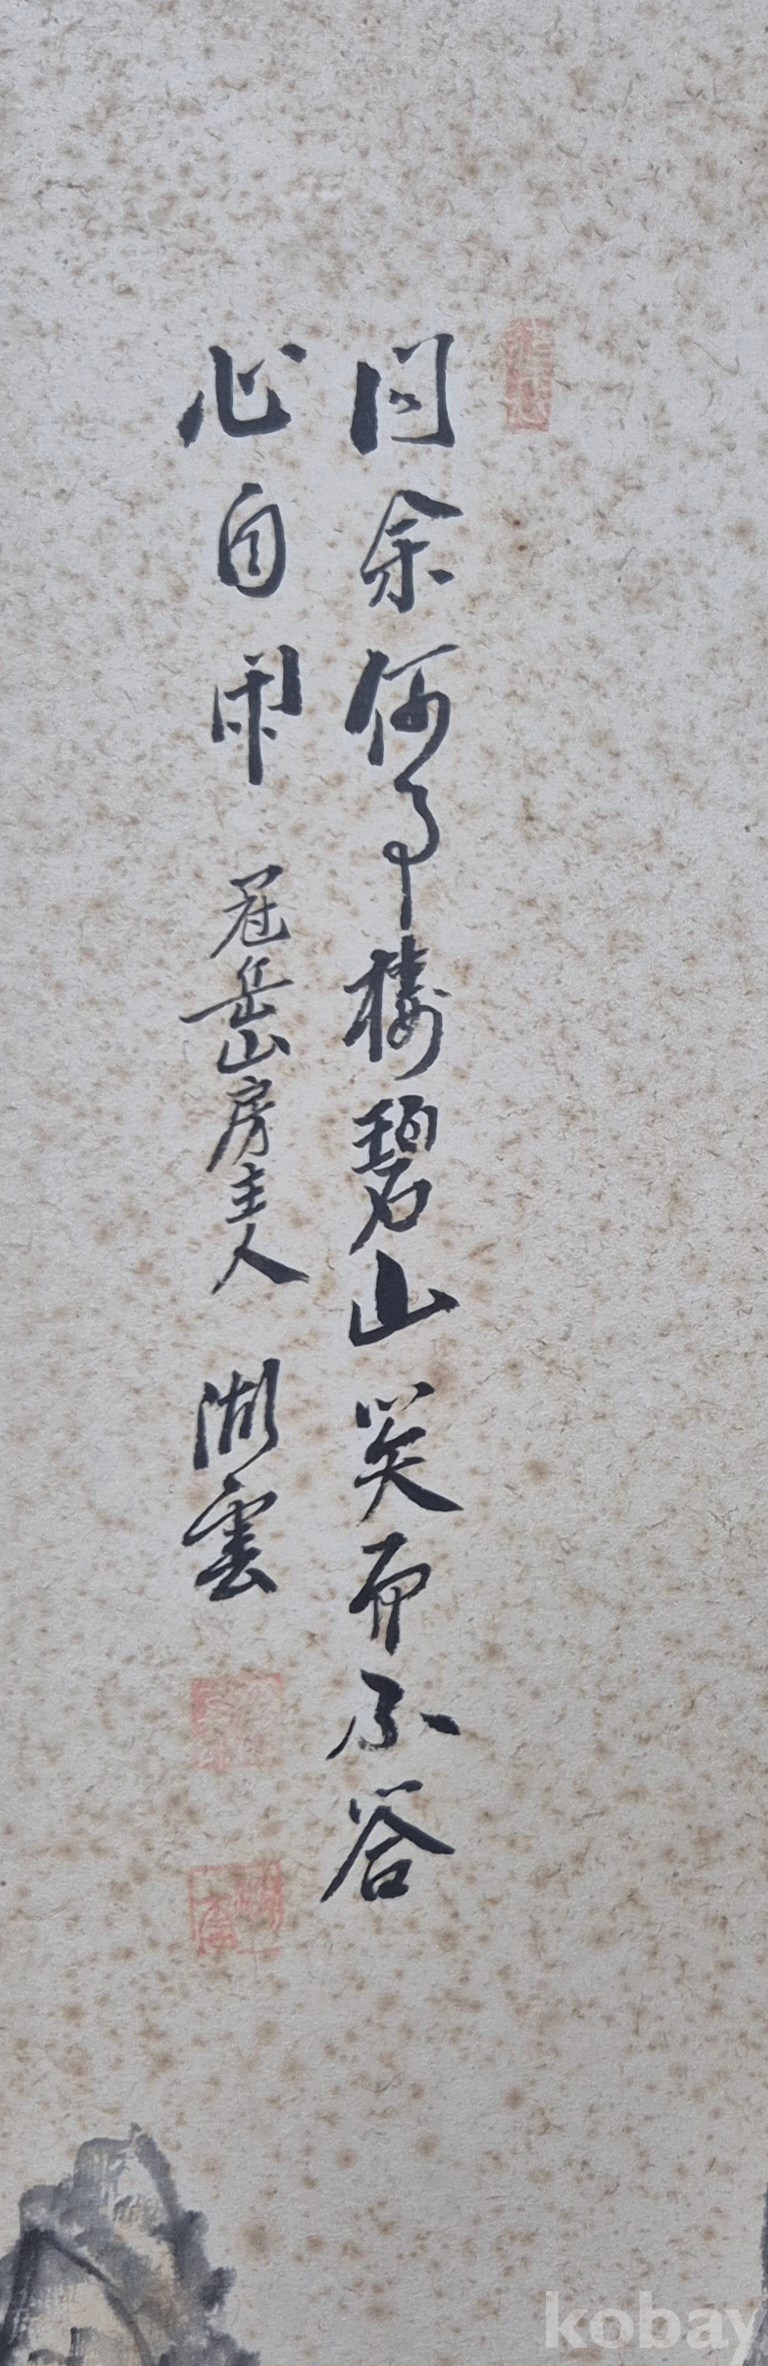 问余何事棲碧山笑而不答
心自閑 冠岳山房主人 湖雲
kobay